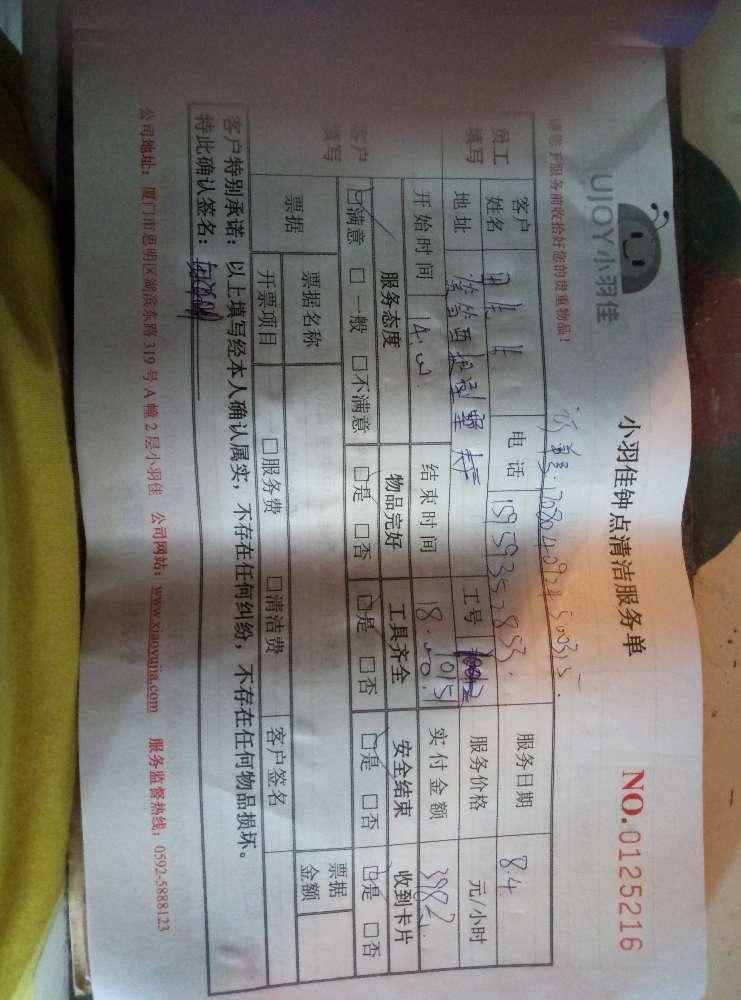 UJOY小羽佳
小羽佳钟点清洁服务单
NO.0125216
请您于服务前收拾好您的贵重物品!
员工填写
客户姓名
电话
服务日期 8.4
地址
工号 1015
服务价格 元/小时
开始时间 14.00
结束时间 18.00
实付金额 398
客户填写
服务态度 物品完好 工具齐全 安全结束 收到卡片
☑满意 □一般 □不满意 ☑是 □否 ☑是 □否 ☑是 □否 ☑是 □否
票据
票据名称
票据金额
开票项目 □服务费 □清洁费 客户签名
客户特别承诺:以上填写经本人确认属实,不存在任何纠纷,不存在任何物品损坏。
特此确认签名:
公司地址:厦门市思明区湖滨东路319号A幢2层小羽佳 公司网站:www.xiaoyujia.com 服务监督热线:0592-5888123